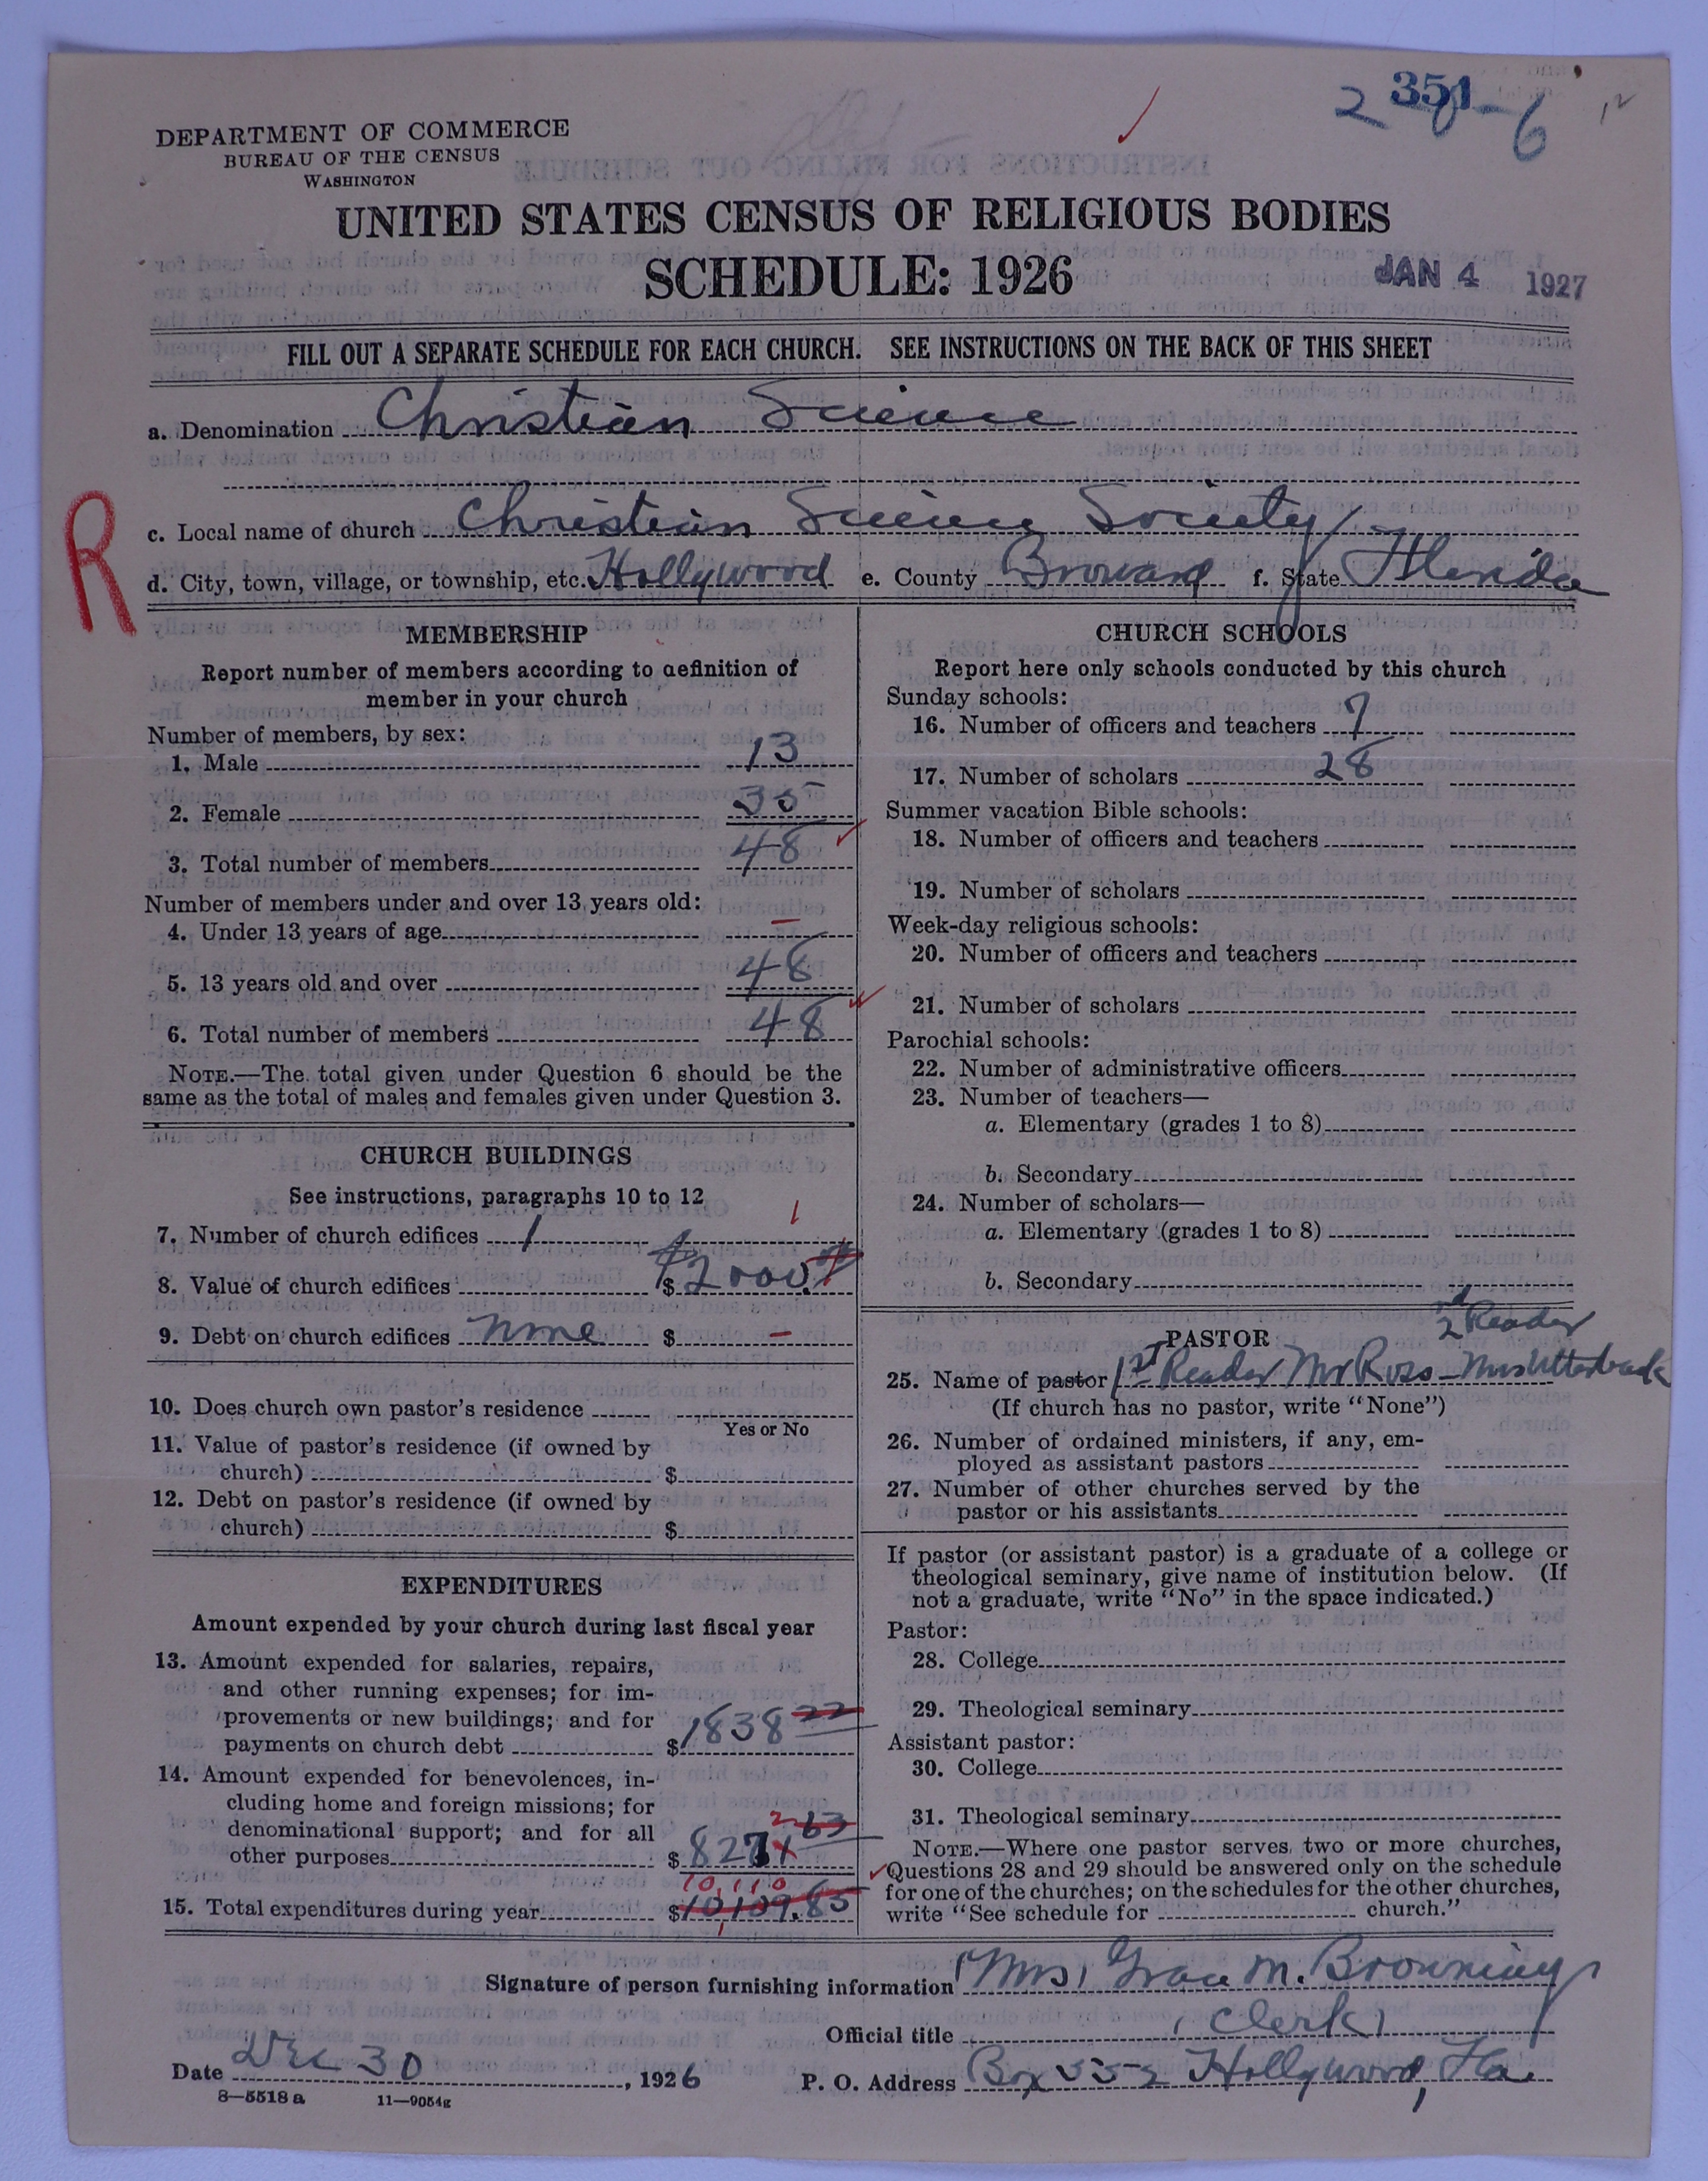 2 351-6
DEPARTMENT OF COMMERCE
BUREAU OF THE CENSUS
WASHINGTON
UNITED STATES CENSUS OF RELIGIOUS BODIES
SCHEDULE: 1926
JAN 4 1927
FILL OUT A SEPARATE SCHEDULE FOR EACH CHURCH. SEE INSTRUCTIONS ON THE BACK OF THIS SHEET
a. Denomination Christian Science
R
c. Local name of church Christian Science Society
d. City, town, village, or township, etc. Hollywood e. County Broward f. State Florida
MEMBERSHIP
Report number of members according to definition of
member in your church
Number of members, by sex:
1. Male 13
2. Female 35
3. Total number of members 48
Number of members under and over 13 years old:
4. Under 13 years of age –
5. 13 years old and over 48
6. Total number of members 48
NOTE.—The total given under Question 6 should be the
same as the total of males and females given under Question 3.
CHURCH BUILDINGS
See instructions, paragraphs 10 to 12
7. Number of church edifices 1 1
8. Value of church edifices $ $2000.
9. Debt on church edifices none $ –
10. Does church own pastor's residence
Yes or No
11. Value of pastor's residence (if owned by
church) $
12. Debt on pastor's residence (if owned by
church) $
EXPENDITURES
Amount expended by your church during last fiscal year
13. Amount expended for salaries, repairs,
and other running expenses; for im-
provements or new buildings; and for
payments on church debt $ 1838 22
14. Amount expended for benevolences, in-
cluding home and foreign missions; for
denominational support; and for all
other purposes $ 8271 63
2
10,110
15. Total expenditures during year $ 10,109.85
CHURCH SCHOOLS
Report here only schools conducted by this church
Sunday schools:
16. Number of officers and teachers 7
17. Number of scholars 28
Summer vacation Bible schools:
18. Number of officers and teachers
19. Number of scholars
Week-day religious schools:
20. Number of officers and teachers
21. Number of scholars
Parochial schools:
22. Number of administrative officers
23. Number of teachers—
a. Elementary (grades 1 to 8)
b. Secondary
24. Number of scholars—
a. Elementary (grades 1 to 8)
b. Secondary
PASTOR
2nd Reader
25. Name of pastor 1st Reader Mr Ross – Mrs Utterback
(If church has no pastor, write "None")
26. Number of ordained ministers, if any, em-
ployed as assistant pastors
27. Number of other churches served by the
pastor or his assistants
If pastor (or assistant pastor) is a graduate of a college or
theological seminary, give name of institution below. (If
not a graduate, write "No" in the space indicated.)
Pastor:
28. College
29. Theological seminary
Assistant pastor:
30. College
31. Theological seminary
NOTE.—Where one pastor serves two or more churches,
Questions 28 and 29 should be answered only on the schedule
for one of the churches; on the schedules for the other churches,
write "See schedule for church."
Signature of person furnishing information (Mrs) Grace M. Browning
Official title (Clerk)
Date Dec 30, 1926 P. O. Address Box 552 Hollywood, Fla.
8—5518a 11—9054g